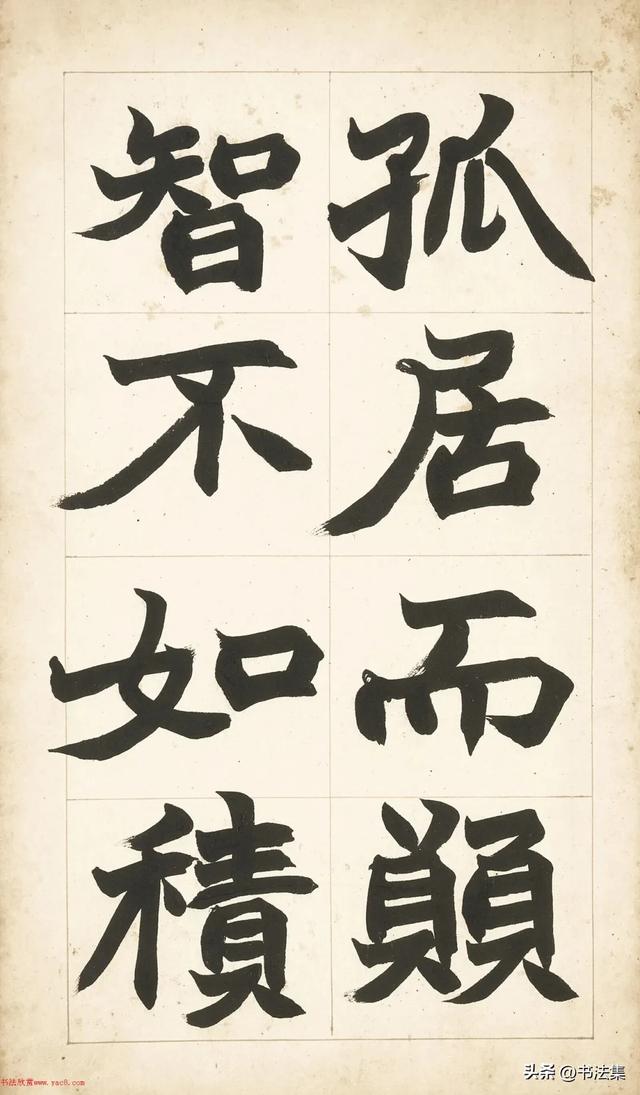 孤居而願
智不如積
书法欣赏www.yac8.com
头条 @书法集